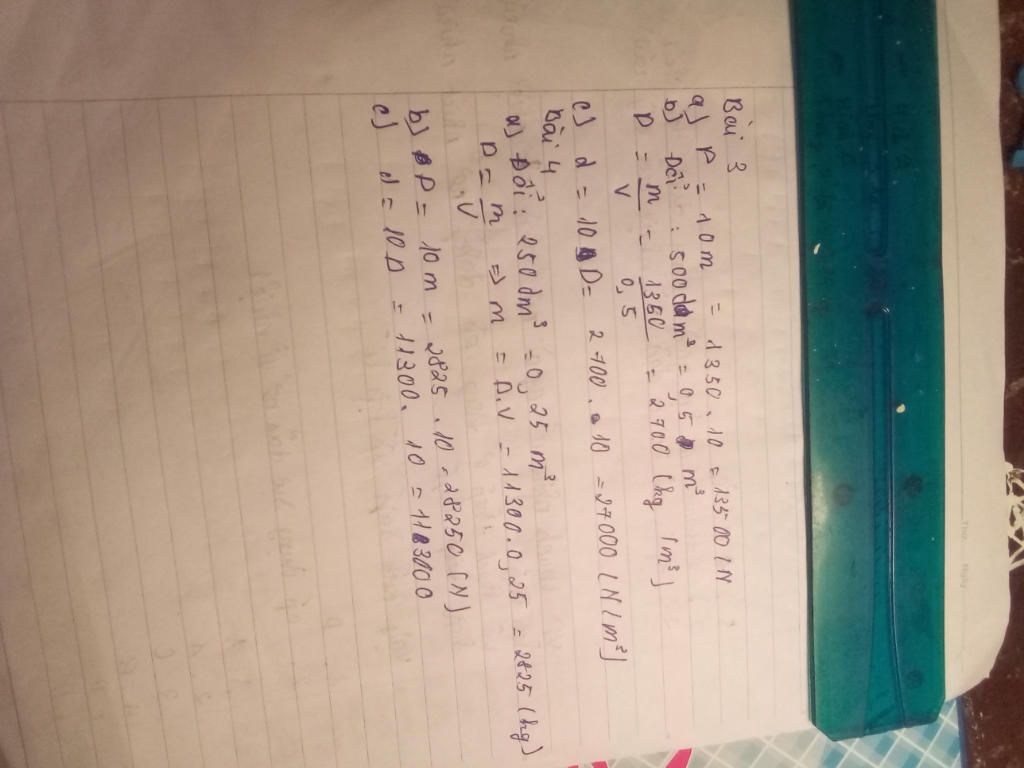 Bài 3
a) P = 10m = 1350.10 = 13500 (N
b) Đổi : 500dm³ = 0,5 m³
D = m/V = 1350/0,5 = 2700 (kg/m³)
c) d = 10 D = 2700.10 = 27000 (N/m³)
Bài 4
a) Đổi : 250dm³ = 0,25 m³
D = m/V => m = D.V = 11300.0,25 = 2825 (kg)
b) P = 10m = 2825.10 = 28250 (N)
c) d = 10D = 11300.10 = 113000